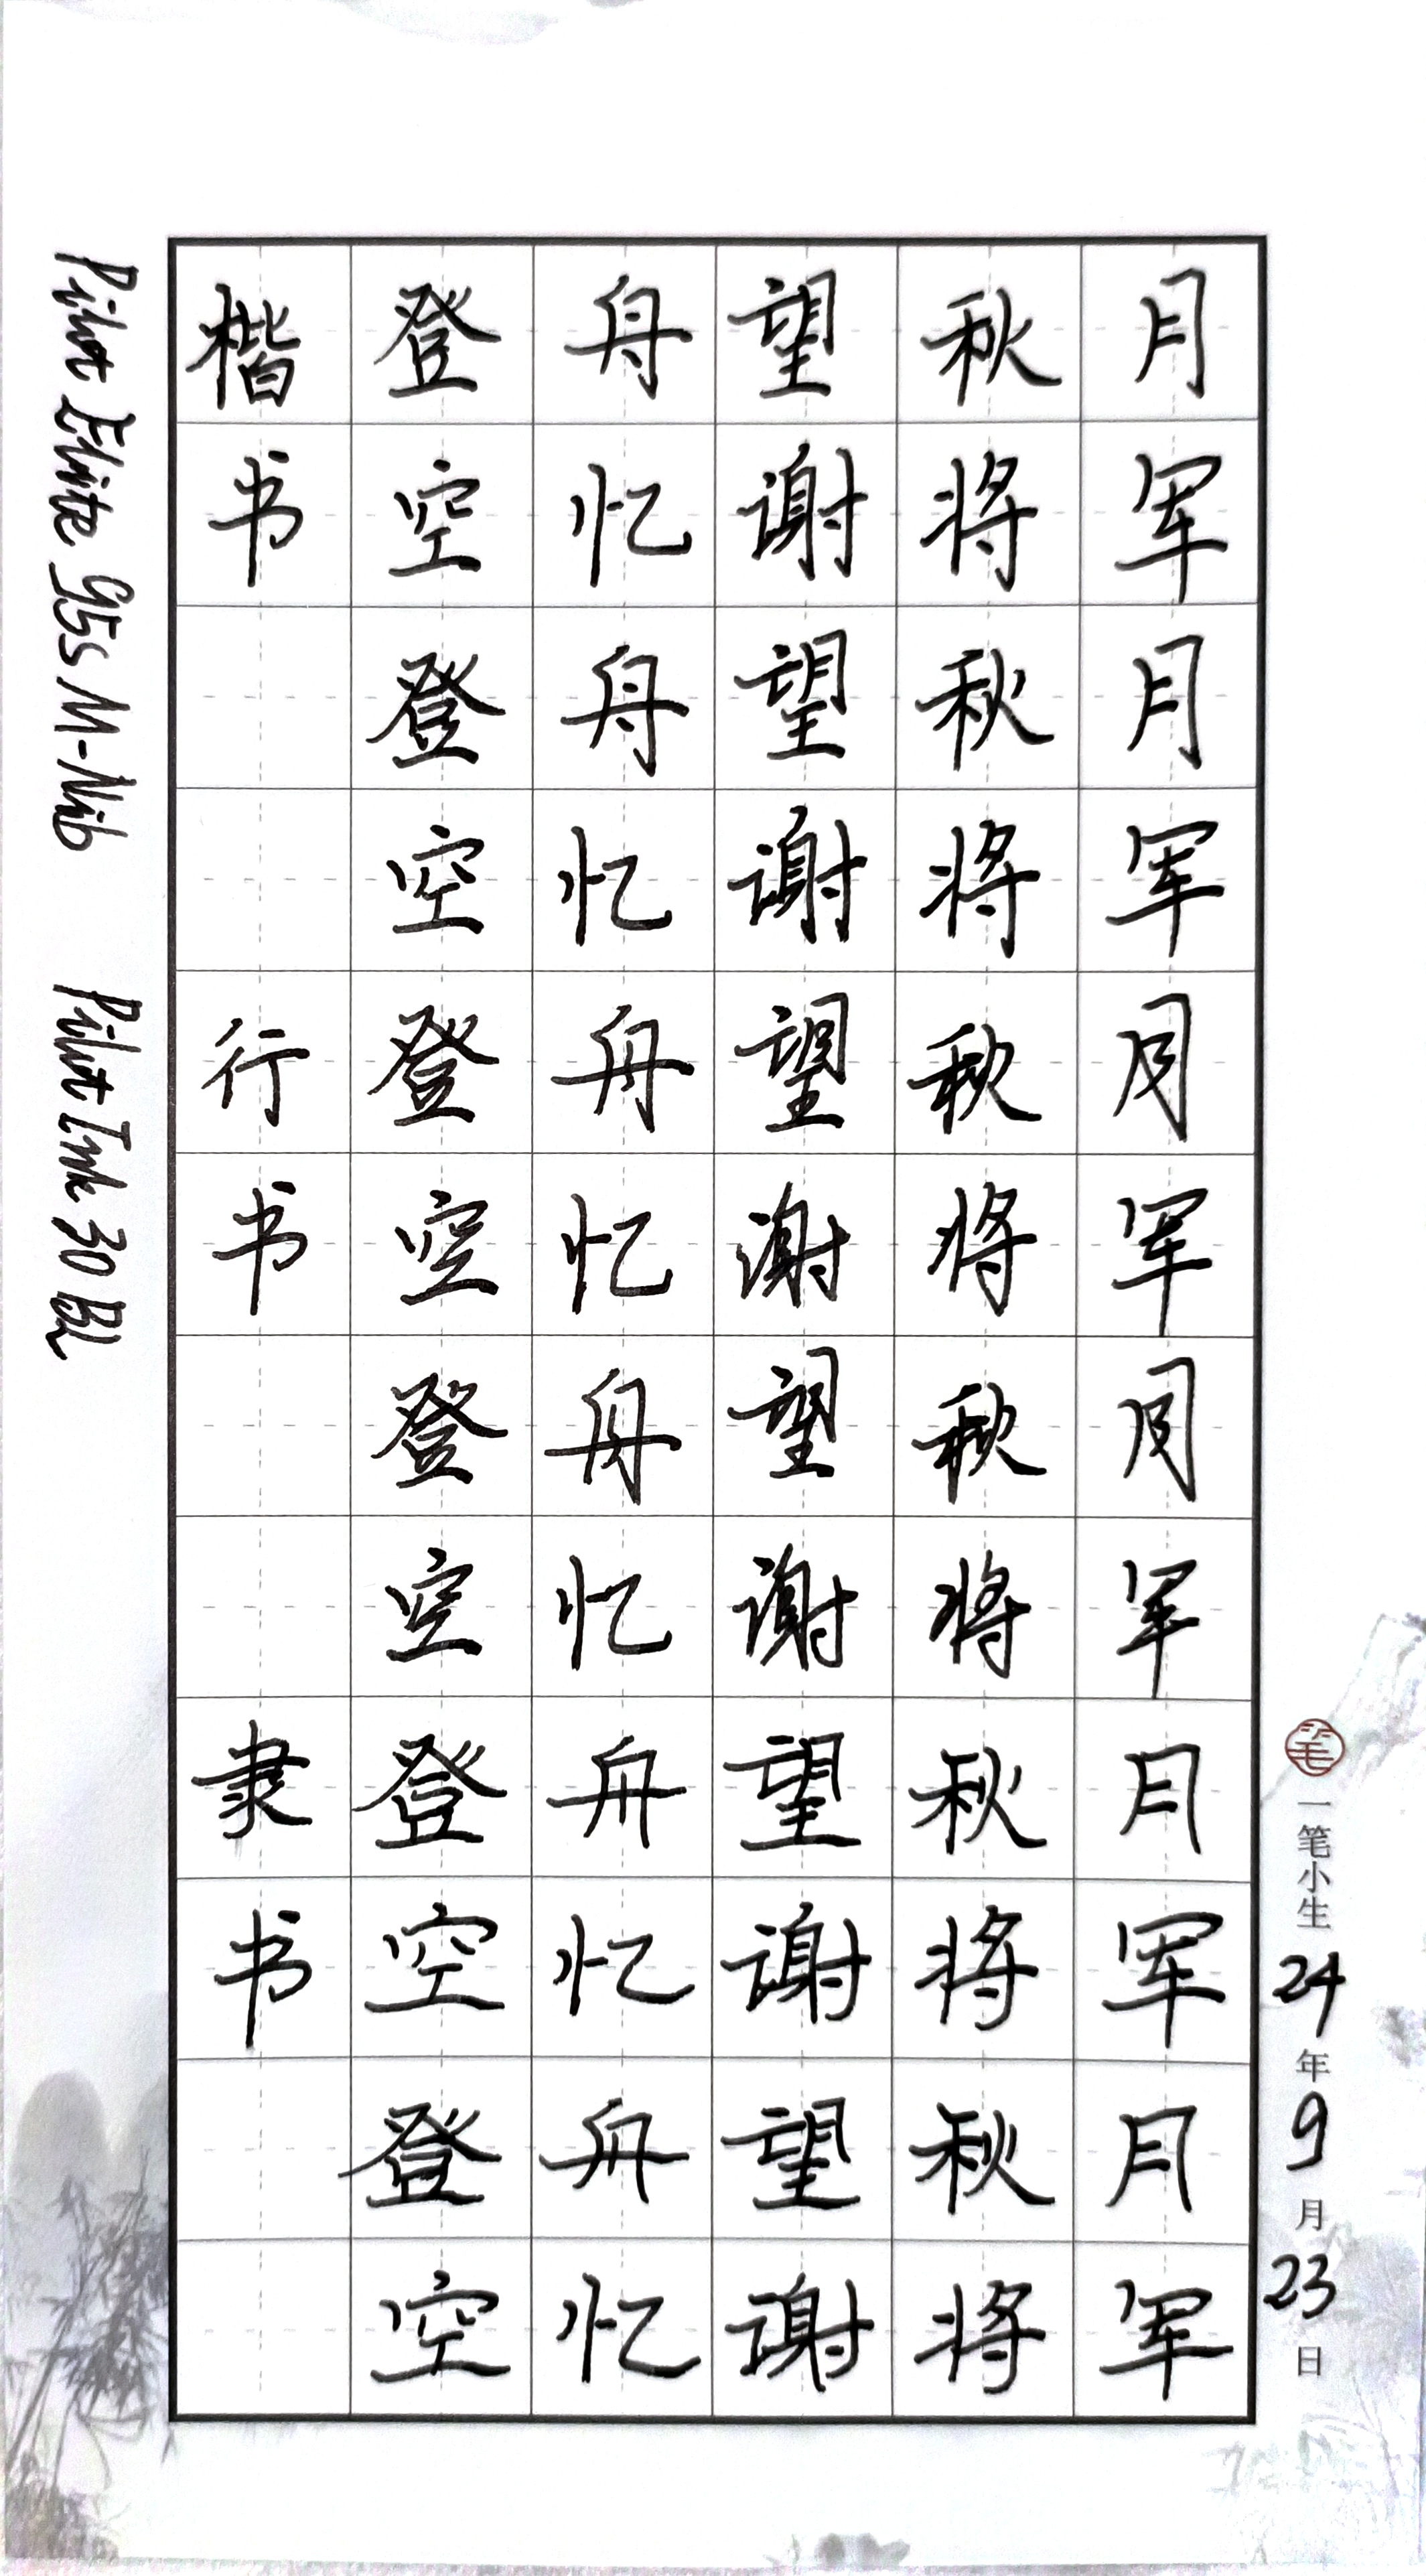 楷登舟望秋月
书空忆谢将军
登舟望秋月
空忆谢将军
行登舟望秋月
书空忆谢将军
登舟望秋月
空忆谢将军
隶登舟望秋月
书空忆谢将军
登舟望秋月
空忆谢将军
Pilot Elite 95s M-Nib Pilot Ink 30 BL
笔 一笔小生 24年9月23日